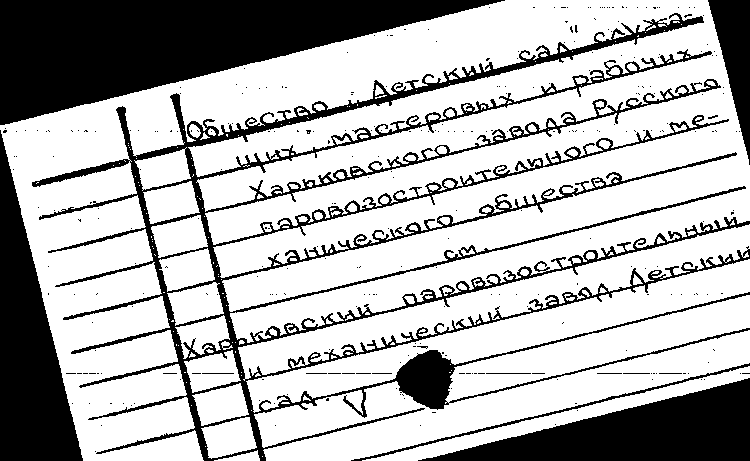 Общество „Детский сад" служа-
щих, мастеровых и рабочих
Харьковского завода Русского
паровозостроительного и ме-
ханического общества
см.
Харьковский паровозостроительный
и механический завод. Детский
сад. V